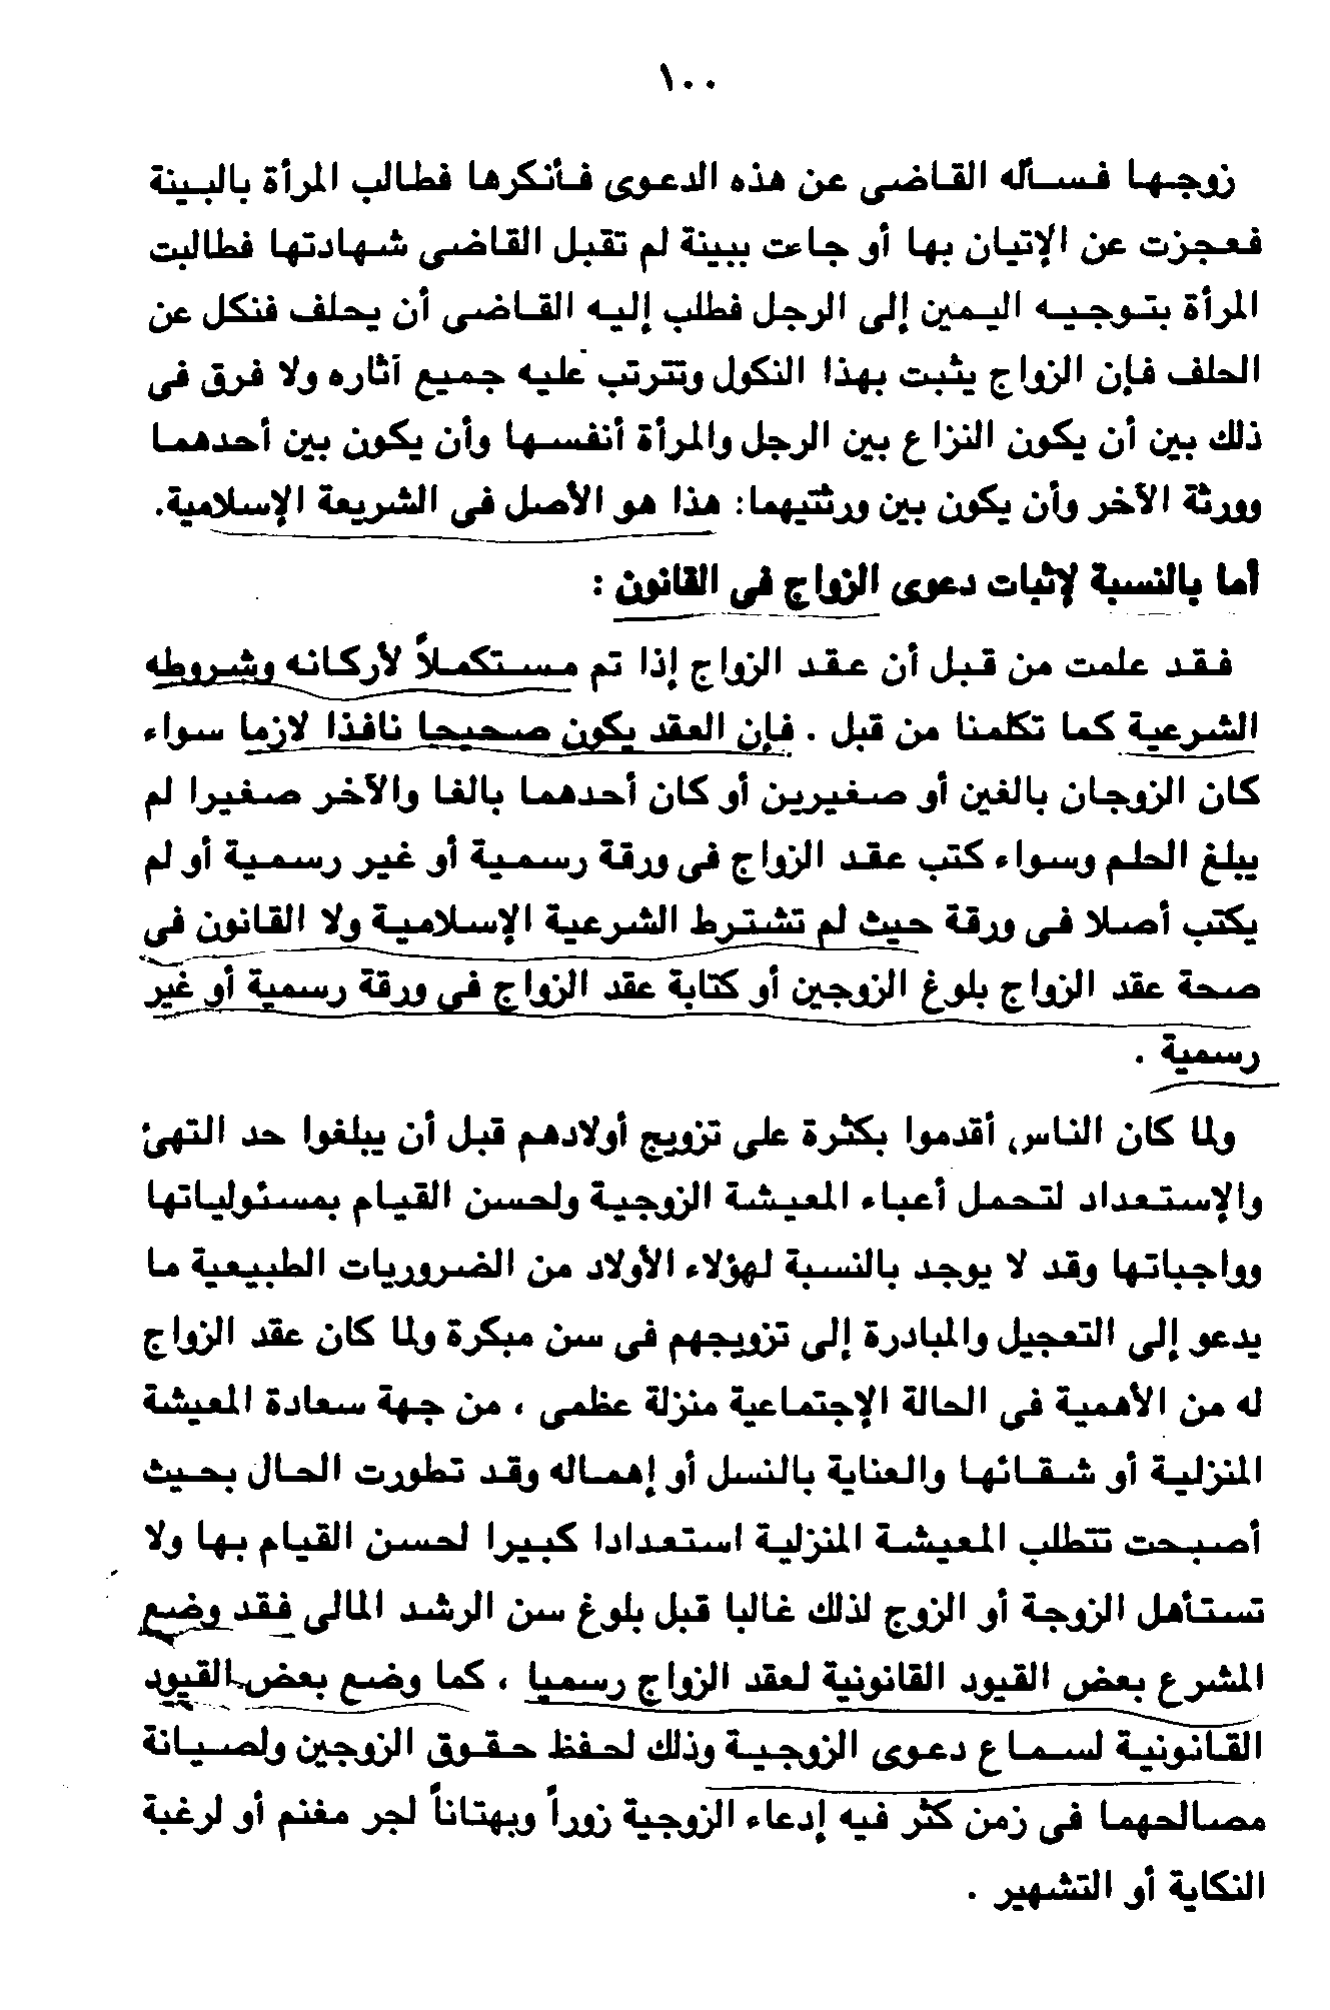 ١٠٠
زوجها فسأله القاضى عن هذه الدعوى فأنكرها فطالب المرأة بالبينة
فعجزت عن الإتيان بها أو جاءت ببينة لم تقبل القاضى شهادتها فطالبت
المرأة بتوجيه اليمين إلى الرجل فطلب إليه القاضى أن يحلف فنكل عن
الحلف فإن الزواج يثبت بهذا النكول وتترتب عليه جميع آثاره ولا فرق فى
ذلك بين أن يكون النزاع بين الرجل والمرأة أنفسها وأن يكون بين أحدهما
وورثة الآخر وأن يكون بين ورثتيهما: هذا هو الأصل فى الشريعة الإسلامية.
أما بالنسبة لإثبات دعوى الزواج فى القانون :
فقد علمت من قبل أن عقد الزواج إذا تم مستكملاً لأركانه وشروطه
الشرعية كما تكلمنا من قبل . فإن العقد يكون صحيحا نافذا لازما سواء
كان الزوجان بالغين أو صغيرين أو كان أحدهما بالغا والآخر صغيرا لم
يبلغ الحلم وسواء كتب عقد الزواج فى ورقة رسمية أو غير رسمية أو لم
يكتب أصلا فى ورقة حيث لم تشترط الشرعية الإسلامية ولا القانون فى
صحة عقد الزواج بلوغ الزوجين أو كتابة عقد الزواج في ورقة رسمية أو غير
رسمية .
ولما كان الناس أقدموا بكثرة على تزويج أولادهم قبل أن يبلغوا حد التهئ
والإستعداد لتحمل أعباء المعيشة الزوجية ولحسن القيام بمسئولياتها
وواجباتها وقد لا يوجد بالنسبة لهؤلاء الأولاد من الضروريات الطبيعية ما
يدعو إلى التعجيل والمبادرة إلى تزويجهم فى سن مبكرة ولما كان عقد الزواج
له من الأهمية فى الحالة الإجتماعية منزلة عظمى ، من جهة سعادة المعيشة
المنزلية أو شقائها والعناية بالنسل أو إهماله وقد تطورت الحال بحيث
أصبحت تتطلب المعيشة المنزلية استعدادا كبيرا لحسن القيام بها ولا
تستأهل الزوجة أو الزوج لذلك غالبا قبل بلوغ سن الرشد المالى فقد وضع
المشرع بعض القيود القانونية لعقد الزواج رسميا ، كما وضع بعض القيود
القانونية لسماع دعوى الزوجية وذلك لحفظ حقوق الزوجين ولصيانة
مصالحهما فى زمن كثر فيه إدعاء الزوجية زوراً وبهتاناً لجر مغنم أو لرغبة
النكاية أو التشهير .